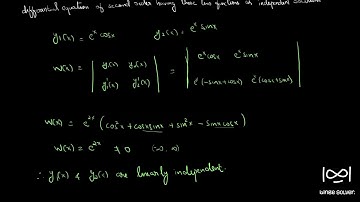 differential equation of second order having these two functions as independent solutions
y₁(x) = eˣ cosx    y₂(x) = eˣ sinx
W(x) = | y₁(x) y₂(x) | = | eˣcosx eˣsinx |
| y₁'(x) y₂'(x) | | eˣ(-sinx+cosx) eˣ(cosx+sinx) |
W(x) = e²ˣ (cos²x + cosxsinx + sin²x - sinxcosx)
W(x) = e²ˣ ≠ 0 (-∞, ∞)
∴ y₁(x) & y₂(x) are linearly independent.